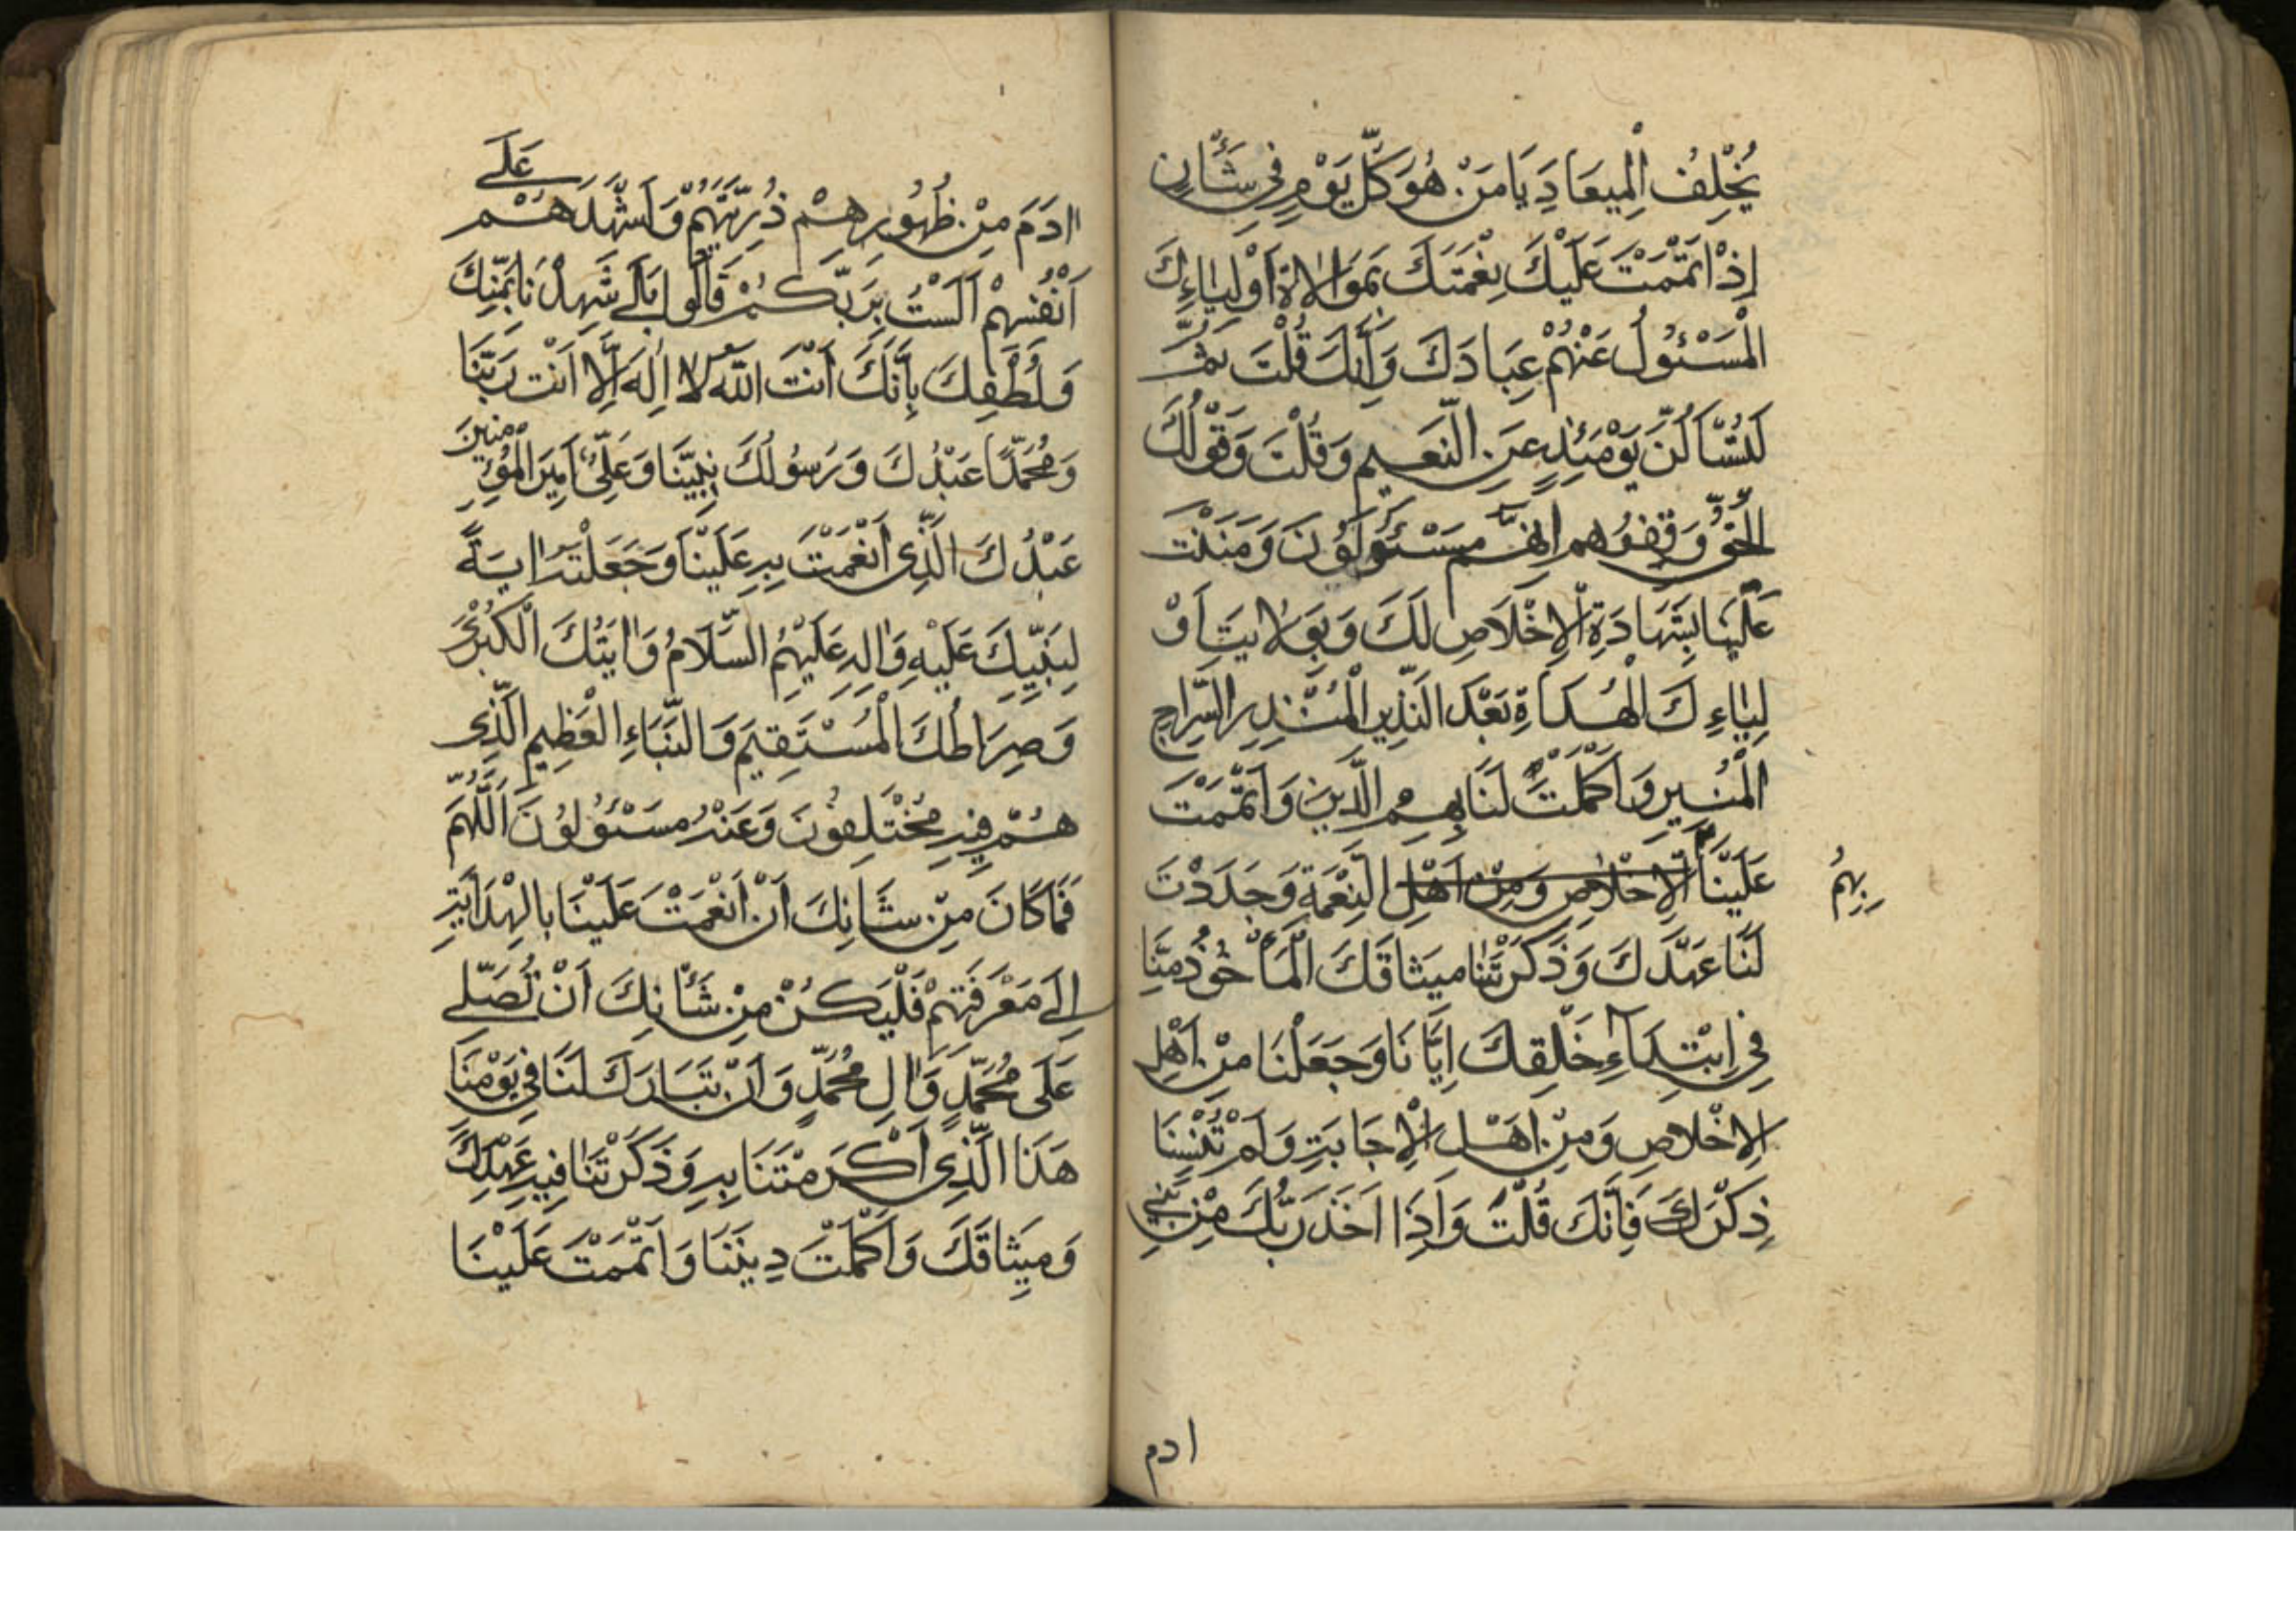 يُخْلِفُ الْمِيعَادَ يَا مَنْ هُوَ كُلَّ يَوْمٍ فِي شَأْنٍ
إِذْ أَتْمَمْتَ عَلَيْكَ نِعْمَتَكَ بِمَوَالاةِ أَوْلِيَاءِكَ
الْمَسْئُولُ عَنْهُمْ عِبَادَكَ وَإِنَّكَ قُلْتَ ثُمَّ
لَتُسْأَلُنَّ يَوْمَئِذٍ عَنِ النَّعِيمِ وَقُلْتَ وَقَوْلُكَ
الْحَقُّ وَقِفُوهُم إِنَّهُم مَسْئُولُونَ وَمَنَنْتَ
عَلَيْنَا بِشَهَادَةِ الْإِخْلَاصِ لَكَ وَبِوَلايَتِ أَوْ
لِيَاءِكَ الْهُدَاةِ بَعْدَ النَّذِيرِ الْمُنْذِرِ السِّرَاجِ
الْمُنِيرِ وَأَكْمَلْتَ لَنَا بِهِمُ الدِّينَ وَأَتْمَمْتَ
عَلَيْنَا الْإِخْلَاصِ وَمِنْ أَهْلِ النِّعْمَةَ وَجَدَّدْتَ
بِهِمُ
لَنَا عَهْدَكَ وَذَكَّرْتَنَا مِيثَاقَكَ الْمَأْخُوذَ مِنَّا
فِي ابْتِدَآءِ خَلْقِكَ إِيَّانَا وَجَعَلْنَا مِنْ أَهْلِ
الإِخْلاصِ وَمِنْ أَهْلِ الْإِجَابَةِ وَلَمْ تُنْسِنَا
ذِكْرَكَ فَإِنَّكَ قُلْتَ وَإِذَا أَخَذَ رَبُّكَ مِنْ بَنِي
ادم
عَلَى
اادَمَ مِنْ ظُهُورِهِمْ ذُرِّيَّتَهُمْ وَأَشْهَدَهُمْ
أَنْفُسِهِمْ أَلَسْتُ بِرَبِّكُمْ قَالُوا بَلَى شَهِدْنَا بِمَنِّكَ
وَلُطْفِكَ بِأَنَّكَ أَنْتَ اللَّهُ لا إِلَهَ إِلَّا أَنْتَ رَبُّنَا
وَمُحَمَّدًا عَبْدُكَ وَرَسُولُكَ نَبِيِّنَا وَعَلِيٌّ أَمِيرَ الْمُؤْمِنِينَ
عَبْدُكَ الَّذِي أَنْعَمْتَ بِهِ عَلَيْنَا وَجَعَلْتَهُ ايَةً
لِنَبِيِّكَ عَلَيْهِ وَالِهِ عَلَيْهِمُ السَّلَامُ وَايَتُكَ الْكُبْرَى
وَصِرَاطُكَ الْمُسْتَقِيمَ وَالنَّبَاءِ الْعَظِيمِ الَّذِي
هُمْ فِيهِ مُخْتَلِفُونَ وَعَنْهُ مَسْئُولُونَ اَللَّهُمَّ
فَمَا كَانَ مِنْ شَانِكَ أَنْ أَنْعَمْتَ عَلَيْنَا بِالْهِدَايَةِ
إِلَى مَعْرِفَتِهِمْ فَلْيَكُنْ مِنْ شَأْنِكَ أَنْ تُصَلِّي
عَلَى مُحَمَّدٍ وَالِ مُحَمَّدٍ وَأَنْ تَبَارَكَ لَنَا فِي يَوْمِنَا
هَذَا الَّذِي أَكْرَمْتَنَا بِهِ وَذَكَّرْتَنَا فِيهِ عَهْدَكَ
وَمِيثَاقَكَ وَأَكْمَلْتَ دِينَنَا وَأَتْمَمْتَ عَلَيْنَا